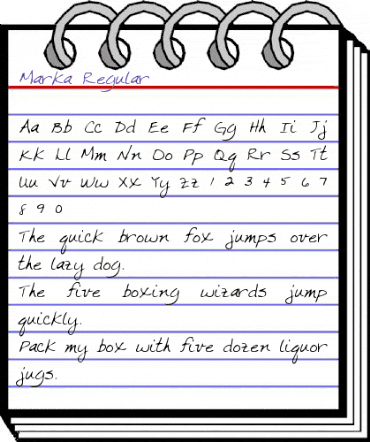 Marka Regular
Aa Bb Cc Dd Ee Ff Gg Hh Ii Jj
Kk Ll Mm Nn Oo Pp Qq Rr Ss Tt
Uu Vv Ww Xx Yy Zz 1 2 3 4 5 6 7
8 9 0
The quick brown fox jumps over
the lazy dog.
The five boxing wizards jump
quickly.
Pack my box with five dozen liquor
jugs.